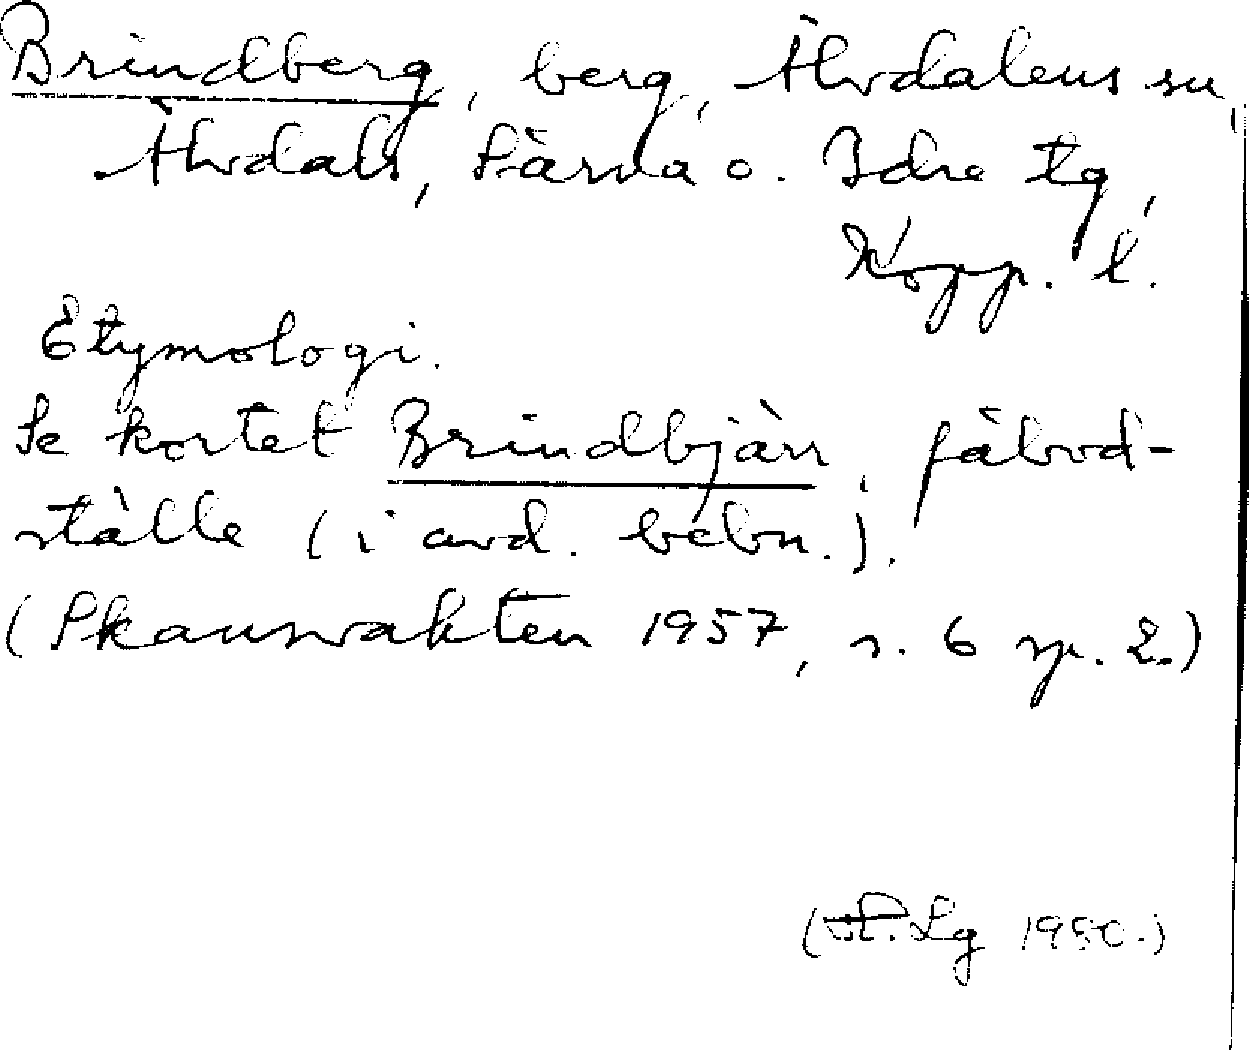 Brindberg, berg, Älvdalens sn,
Älvdals, Särna o. Idre tg,
Kopp. l.
Etymologi.
Se kortet Brindbjärr, fäbod-
ställe (i avd. bebn.).
(Skansvakten 1957, s. 6 sp. 2.)
Lg 1980.)